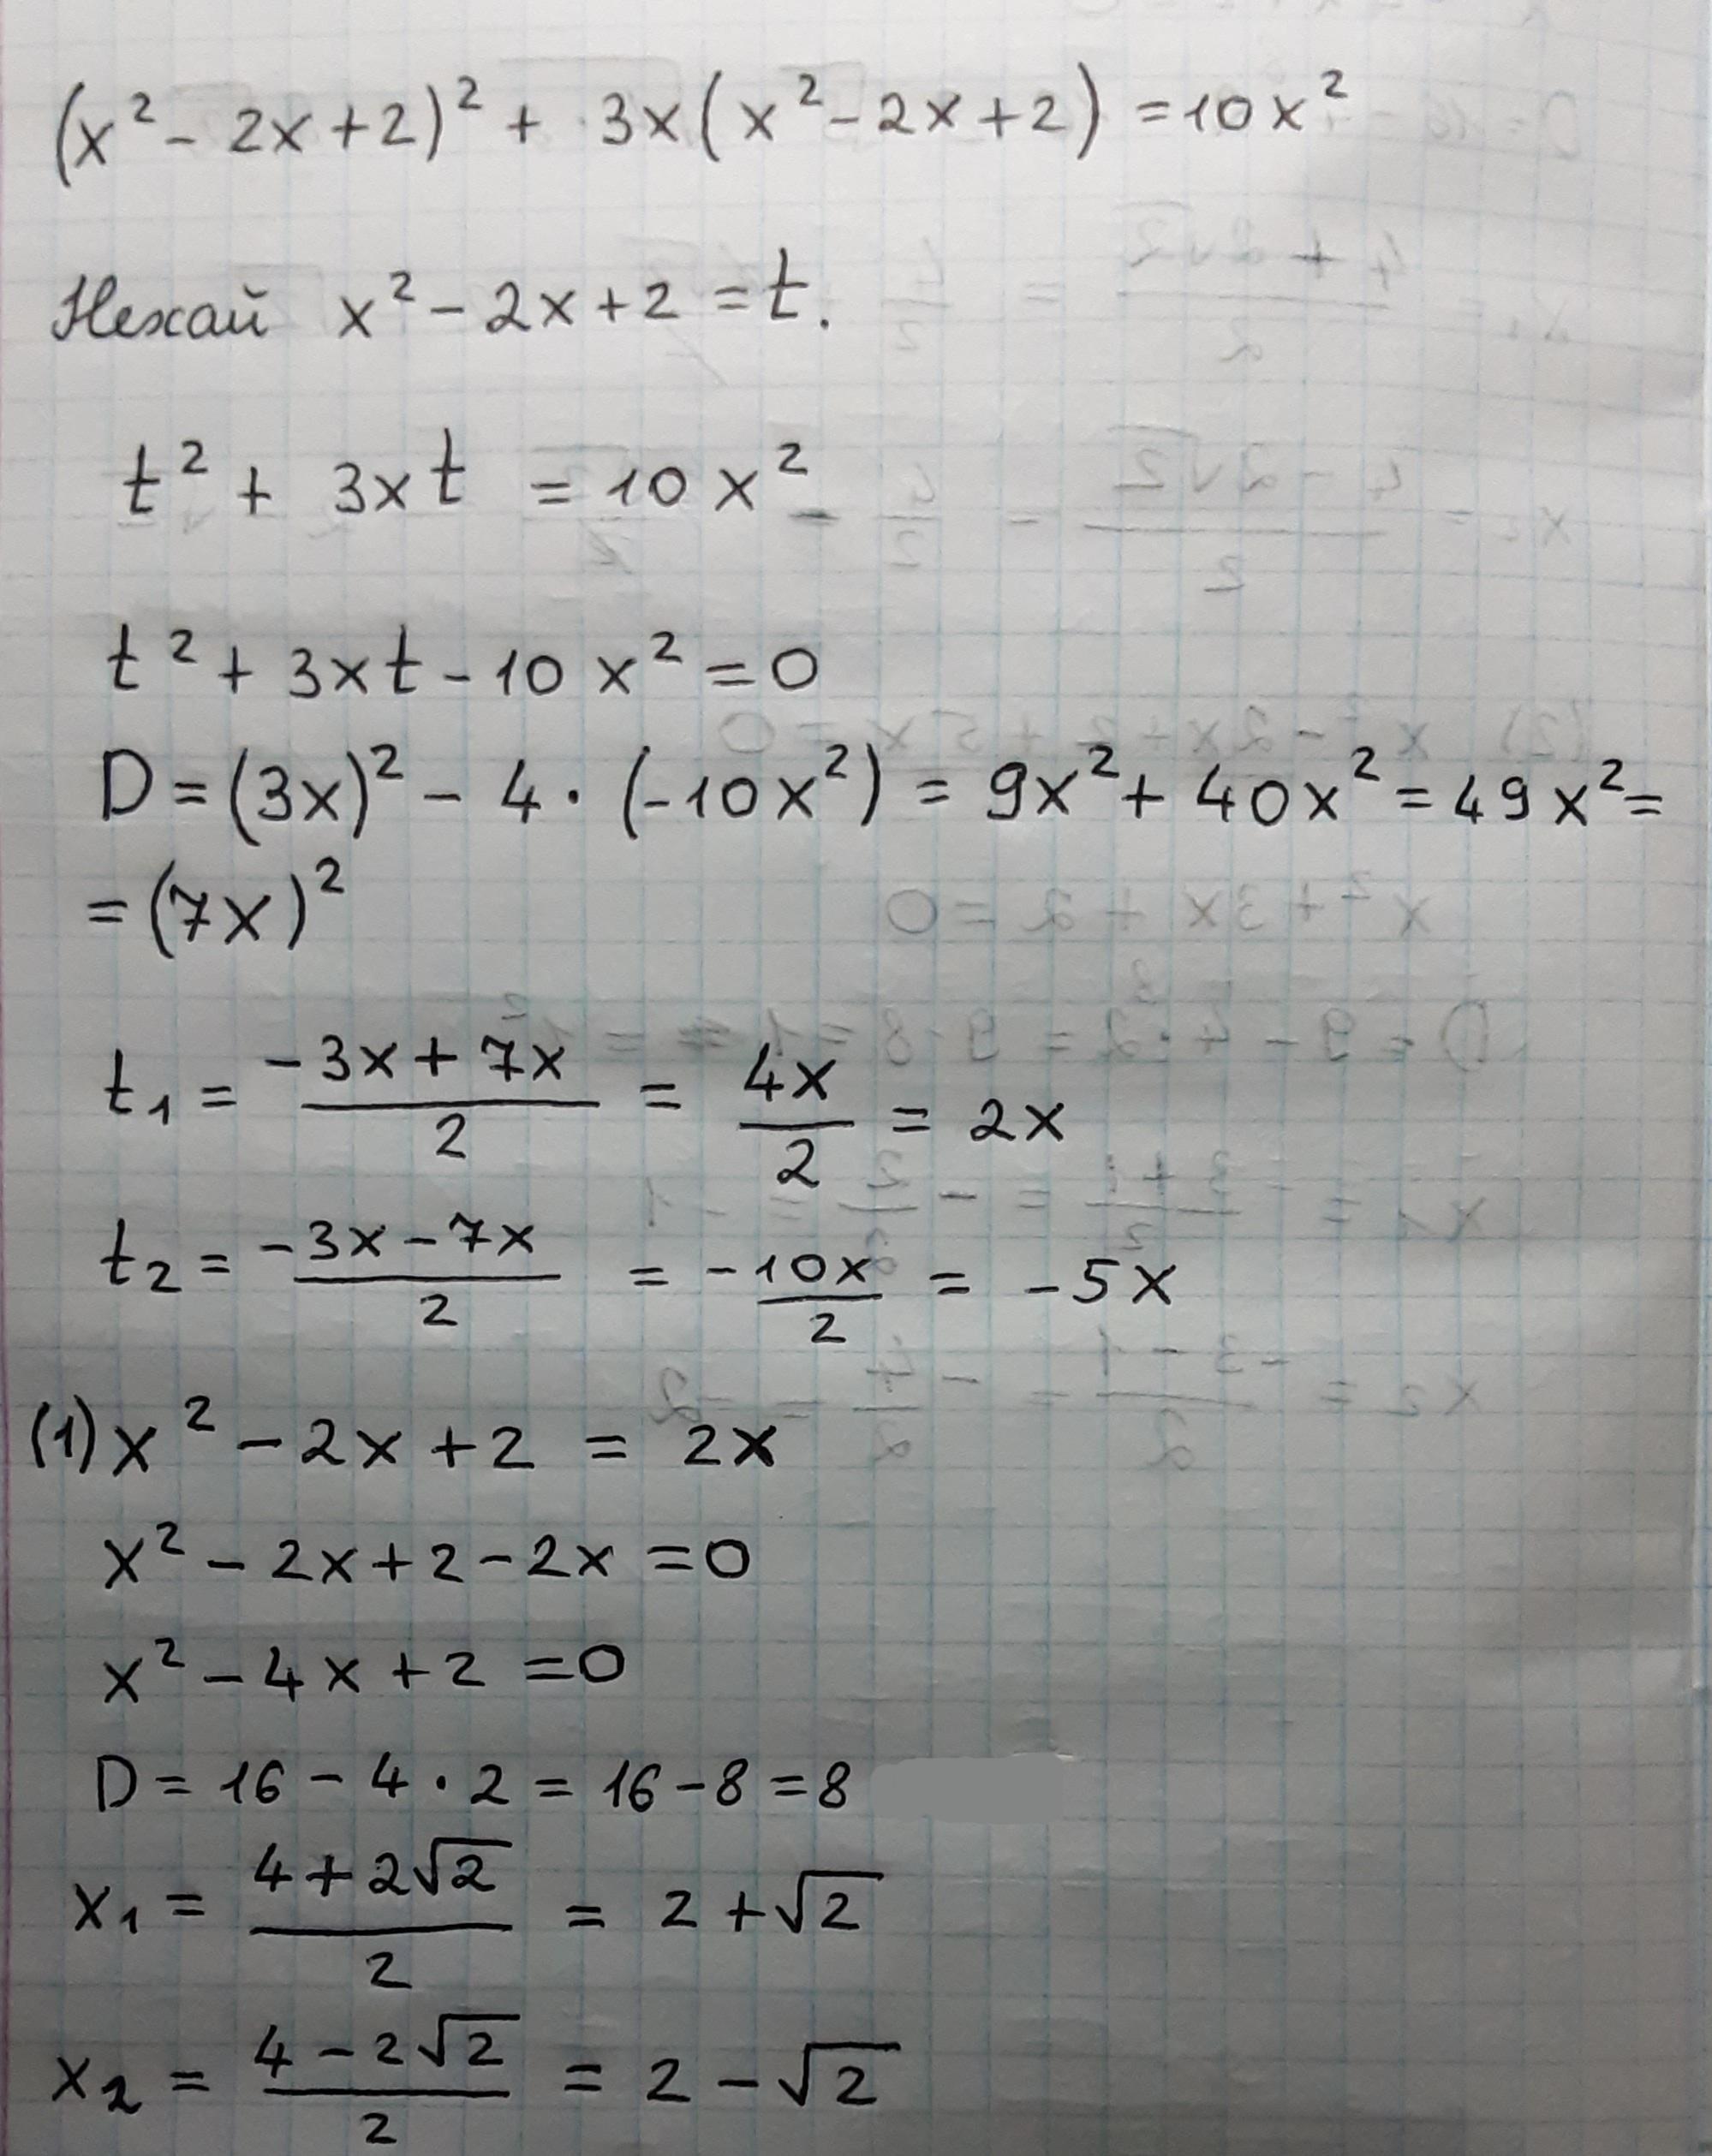 (x² - 2x + 2)² + 3x(x² - 2x + 2) = 10x²
Нехай x² - 2x + 2 = t.
t² + 3xt = 10x²
t² + 3xt - 10x² = 0
D = (3x)² - 4 · (-10x²) = 9x² + 40x² = 49x² =
= (7x)²
t₁ = (-3x + 7x)/2 = 4x/2 = 2x
t₂ = (-3x - 7x)/2 = -10x/2 = -5x
(1) x² - 2x + 2 = 2x
x² - 2x + 2 - 2x = 0
x² - 4x + 2 = 0
D = 16 - 4 · 2 = 16 - 8 = 8
x₁ = (4 + 2√2)/2 = 2 + √2
x₂ = (4 - 2√2)/2 = 2 - √2